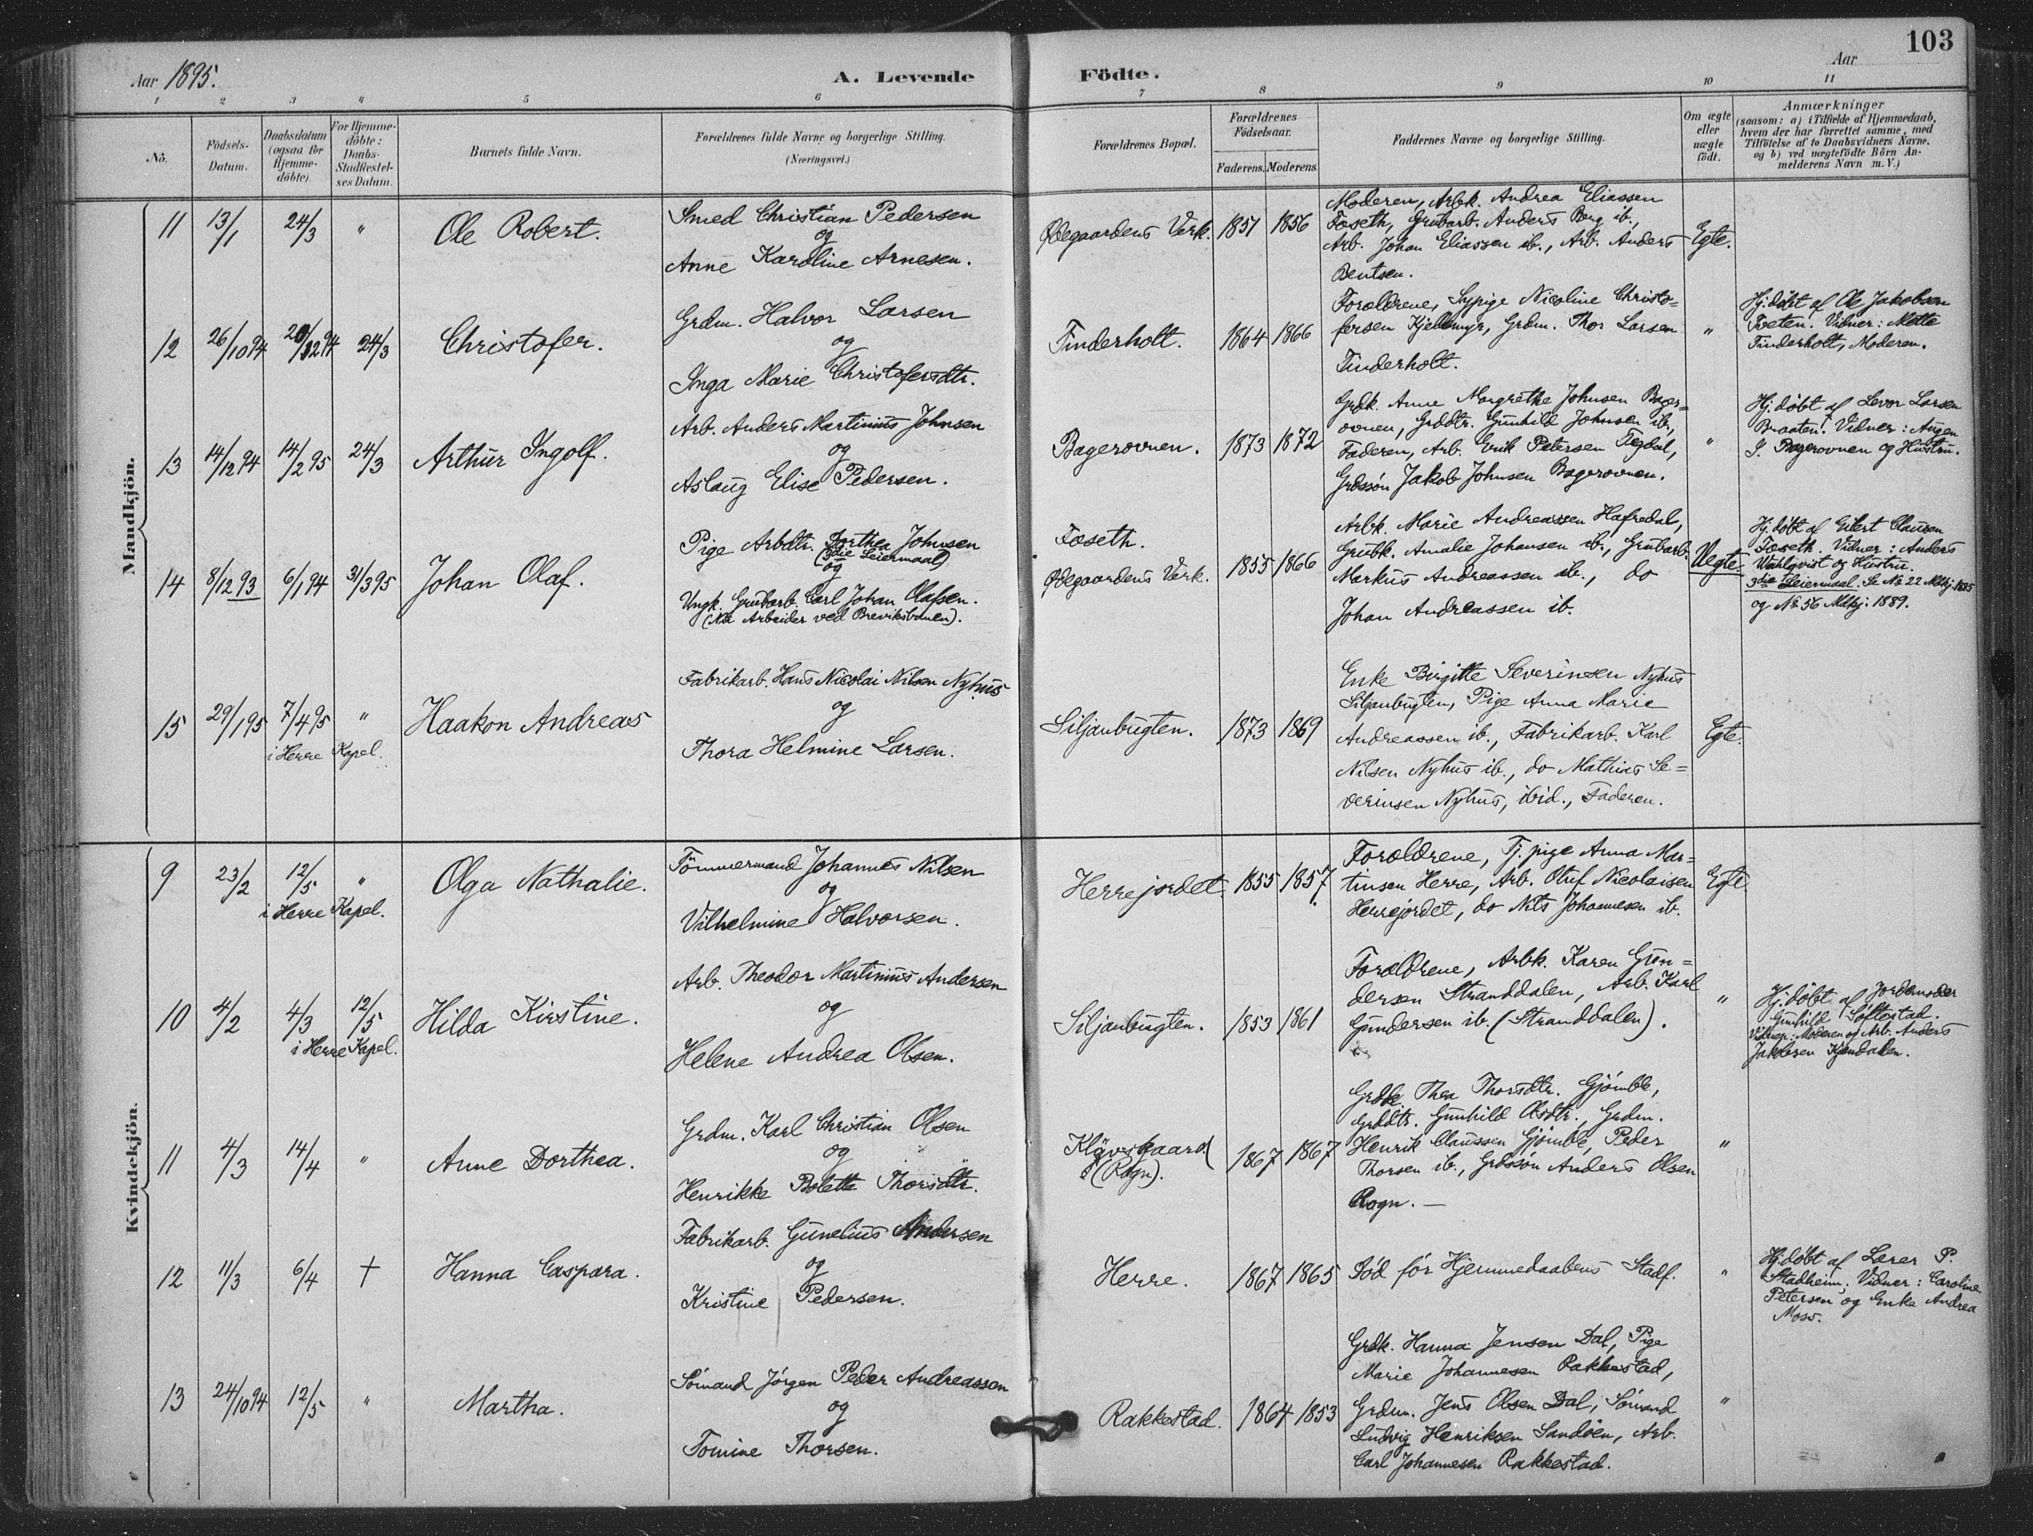 103
Aar 1895.
A. Levende Födte.
Aar
1 2 3 " 5 6 7 8 9 10 11
No.
Födsels-
Datum.
Daabsdatum
(ogsaa for
Hjemme-
döbte).
For Hjemme-
döbte:
Daabs-
Stadfæstel-
ses Datum.
Barnets fulde Navn.
Forældrenes fulde Navne og borgerlige Stilling.
(Næringsvei.)
Forældrenes Bopæl.
Forældrenes
Fødselsaar.
Faderens. Moderens.
Faddernes Navne og borgerlige Stilling.
Om ægte
eller
uægte
født.
Anmærkninger
(saasom: a) i Tilfælde af Hjemmedaab,
hvem der har forrettet samme, med
Tilföielse af to Daabsvidners Navne,
og b) ved uægtefödte Börn An-
melderens Navn m. V.)
Mandkjön.
11 13/1 24/3 " Ole Robert.
Smed Christian Pedersen
og
Anne Karoline Arnesen.
Ødegaardens Verk. 1851 1856
Moderen, Arbk. Andrea Eliassen
Foseth, Grubarb. Anders Berg ib.,
Arb. Johan Eliassen ib., Arb. Anders
Bentsen.
Egte.
12 26/10 94 24/3 Christofer.
Grdm. Halvor Larsen
og
Inga Marie Christofersdtr.
Finderholt. 1864 1866
Forældrene, Sypige Nicoline Christo-
fersen Kjellmyr, Grdm. Thor Larsen
Finderholt.
"
Hj.døbt af Ole Jakobsen
Tveten. Vidner: Mette
Finderholt, Moderen.
13 14/12 94 14/2 95 24/3 Arthur Ingolf.
Arb. Anders Martinius Johnsen
og
Aslaug Elise Pedersen.
Bagerovnen. 1873 1872
Grdk. Anne Margrethe Johnsen Bager-
ovnen, Grddtr. Gunhild Johnsen ib.,
Faderen, Arb. Erik Petersen Tegdal,
Grdssøn Jakob Johnsen Bagerovnen.
"
Hj.døbt af Levor Larsen
Braaten. Vidner:
J. Bagerovnen og Hustru.
14 8/12 93 6/1 94 31/3 95 Johan Olaf.
Pige Arbdtr. Dorthea Johnsen
(3die Leiermaal)
og
Ungk. Grubarb. Carl Johan Olafsen.
(Nu Arbeider ved Breviksbanen).
Foseth.
Ødegaardens Verk. 1855 1866
Arbk. Marie Andreassen Hafredal,
Grubk. Amalie Johansen ib., Grubarb.
Markus Andreassen ib., do
Johan Andreassen ib.
Uegte.
Hj.døbt af Eilert Clausen
Foseth. Vidner: Anders
Wahlqvist og Hustru.
3die Leiermaal. Se No 22 Mkj. 1885
og No 56 Mkj. 1889.
15 29/1 95 7/4 95 " Haakon Andreas
i Herre Kapel.
Fabrikarb. Hans Nicolai Nilsen Nyhus
og
Thora Helmine Larsen.
Siljanbugten. 1873 1869
Enke Birgitte Severinsen Nyhus
Siljanbugten, Pige Anna Marie
Andreassen ib., Fabrikarb. Karl
Nilsen Nyhus ib., do Mathias Se-
verinsen Nyhus, ibid., Faderen.
Egte.
Kvindekjön.
9 23/2 12/5 " Olga Nathalie.
i Herre Kapel.
Tömmermand Johannes Nilsen
og
Vilhelmine Halvorsen.
Herrejordet. 1855 1857
Forældrene, Tj.pige Anna Mar-
tinsen Herre, Arb. Oluf Nicolaisen
Herrejordet, do Nils Johannesen ib.
Egte
10 4/2 4/3 12/5 Hilda Kirstine.
i Herre Kapel.
Arb. Theodor Martinius Andersen
og
Helene Andrea Olsen.
Siljanbugten. 1853 1861
Forældrene, Arbk. Karen Gun-
dersen Stranddalen, Arb. Karl
Gundersen ib. (Stranddalen).
"
Hj.døbt af Jordemoder
Gunhild Søltestad.
Vidner: Moderen og Arb. Anders
Jakobsen Kjendalen.
11 4/3 14/4 " Anne Dorthea.
Grdm. Karl Christian Olsen
og
Henrikke Bolette Thorsdtr.
Klövsgaard
(Rogn). 1867 1867
Grdk. Thea Thorsdtr. Gjömble,
Grddtr. Gunhild Olsdtr., Grdm.
Henrik Claussen Gjömble, Peder
Thorsen ib., Grdssøn Anders Olsen
Rogn. —
"
12 11/3 6/4 † Hanna Caspara.
Fabrikarb. Gunelius Andersen
og
Kristine Pedersen.
Herre. 1867 1865
Död för Hjemmedaabens Stadf.
"
Hj.døbt af Lærer P.
Stadheim. Vidner: Caroline
Petersen og Enke Andrea
Moss.
13 24/10 94 12/5 " Martha.
Sömand Jörgen Peder Andreassen
og
Tomine Thorsen.
Rakkestad. 1864 1853
Grdk. Hanna Jensen Dal, Pige
Marie Johannesen Rakkestad,
Grdm. Jens Olsen Dal, Sömand
Ludvig Henriksen Sandöen, Arb.
Carl Johannesen Rakkestad.
"